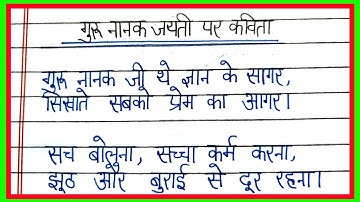 गुरु नानक जयंती पर कविता
गुरु नानक जी थे ज्ञान के सागर,
सिखाते सबको प्रेम का आगर।
सच बोलना, सच्चा कर्म करना,
झूठ और बुराई से दूर रहना।